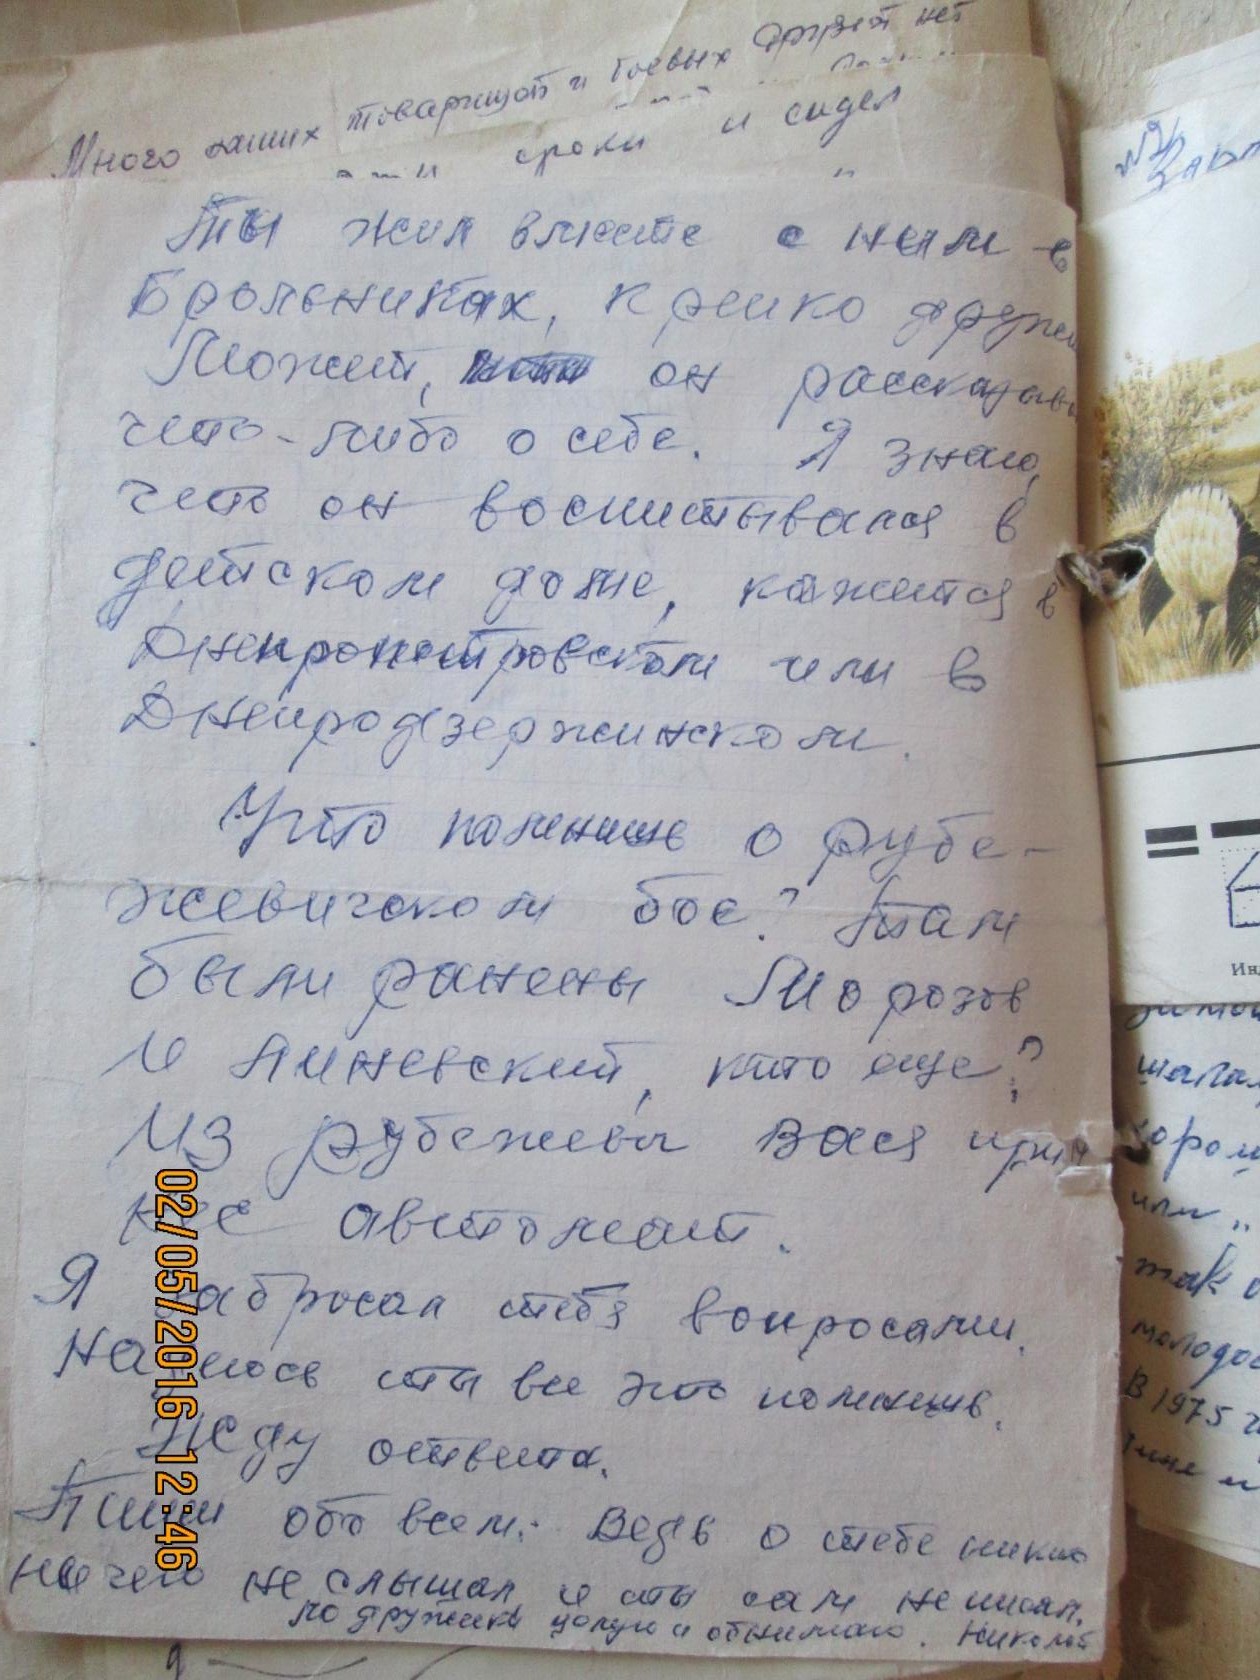 Много наших товарищей и боевых друзей нет
сроки и сидел
Ты жил вместе с ним в
Брольниках, крепко дружи
Может, он рассказыва
что-либо о себе. Я знаю,
что он воспитывался в
детском доме, кажется в
Днепропетровском или в
Днепродзержинском.
Что помнишь о Рубе-
жевичском бое? Там
были ранены Морозов
и Линевский, кто еще?
Из Рубежевич Вася прин
нес автомат.
Я забросал тебя вопросами.
Надеюсь ты все это помнишь.
Жду ответа.
Пиши обо всем. Ведь о тебе никто
ничего не слышал и ты сам не писал.
По дружески целую и обнимаю. Николай
02/05/2016 12:46
№
Ин
или „
так
молодо
В 1975 г